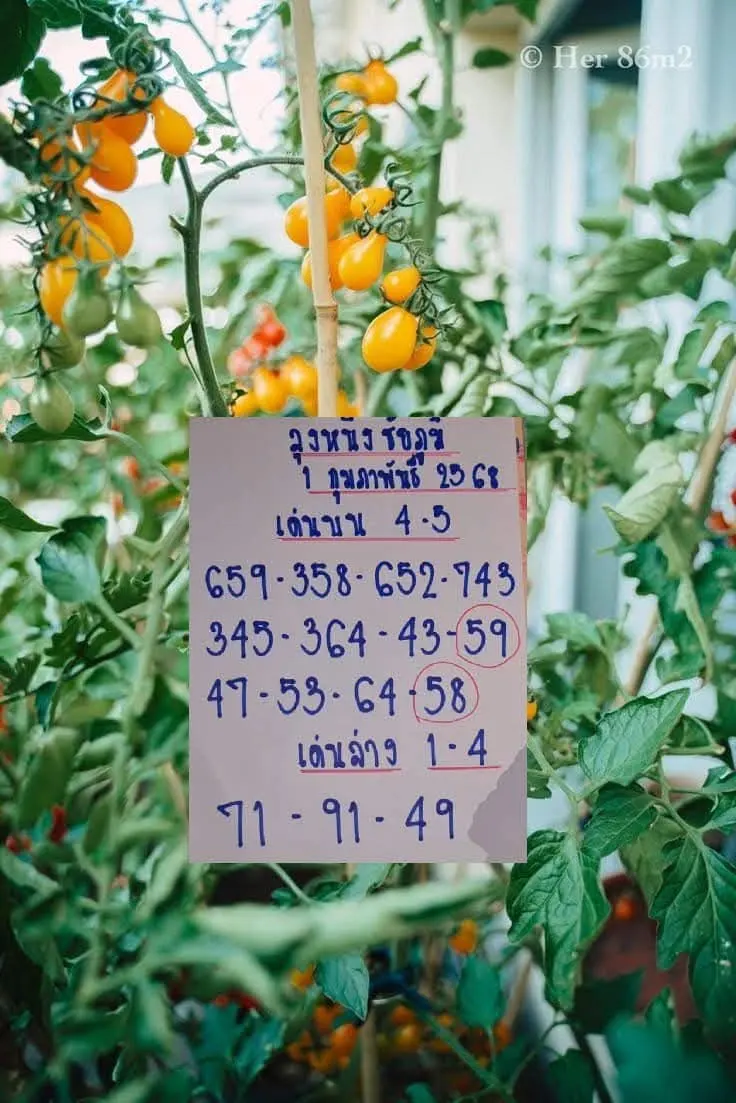 © Her 86m2
ลุงหนึ่ง ชัยภูมิ
1 กุมภาพันธ์ 2568
เด่นบน 4-5
659-358-652-743
345-364-43-59
47-53-64-58
เด่นล่าง 1-4
71-91-49